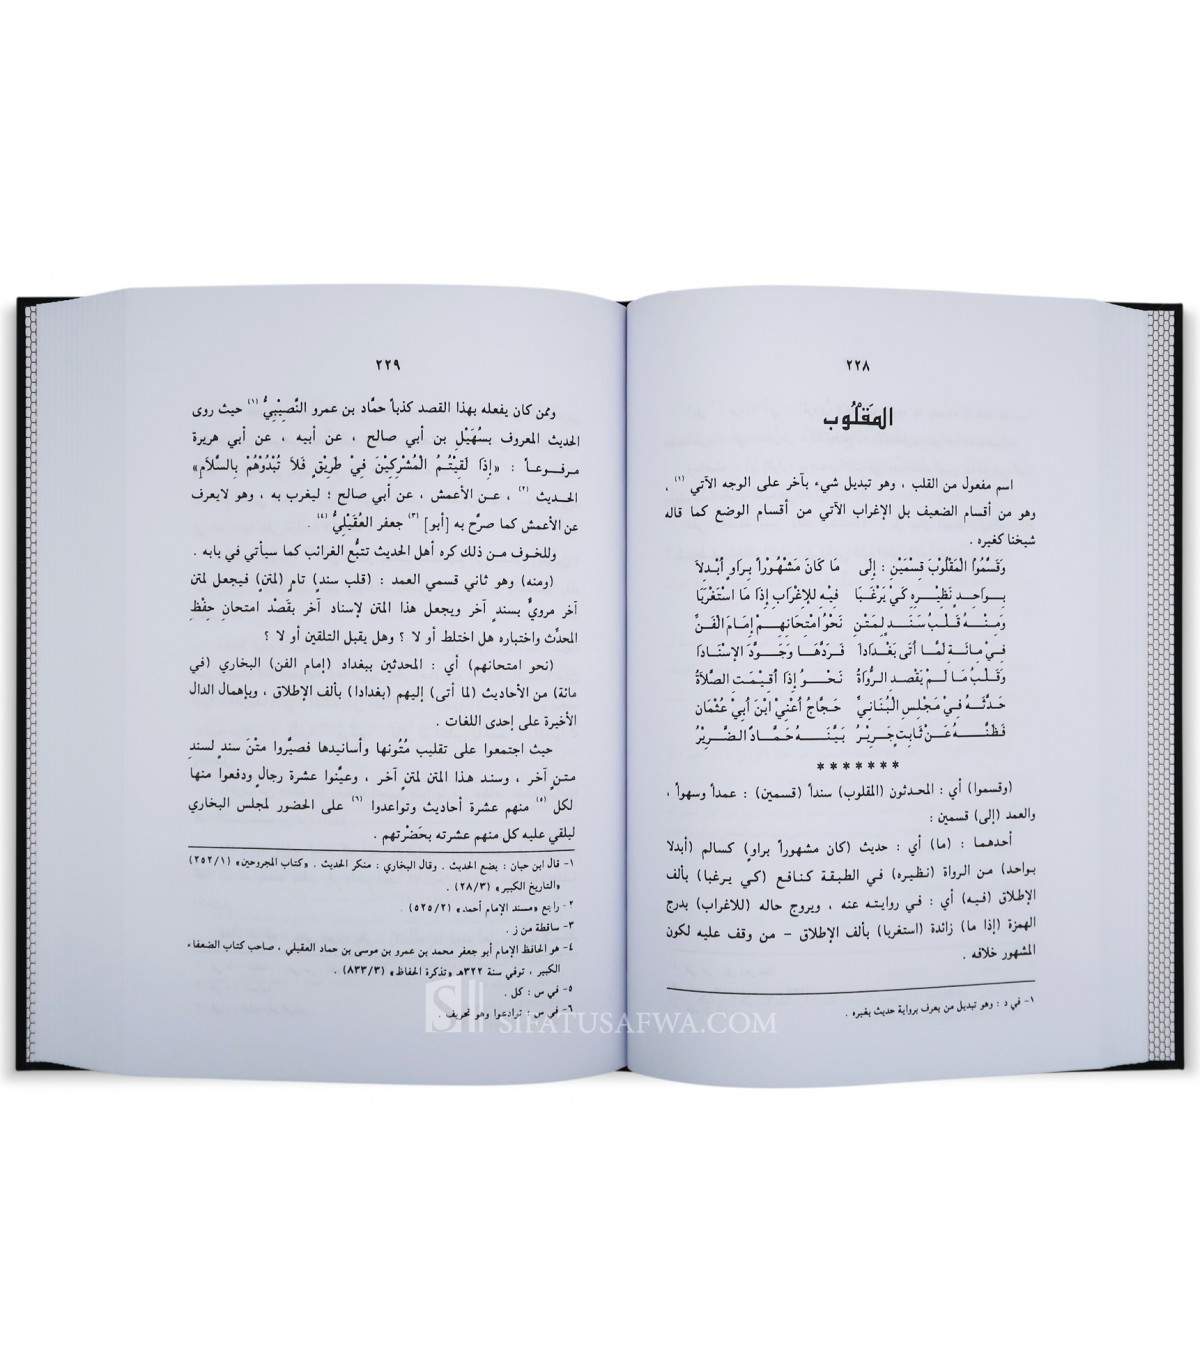 ٢٢٨
المَقْلُوب
اسم مفعول من القلب ، وهو تبديل شيء بآخر على الوجه الآتي (١) ،
وهو من أقسام الضعيف بل الإغراب الآتي من أقسام الوضع كما قاله
شيخنا كغيره .
وَقَسَّمُوا الْمَقْلُوبَ قِسْمَيْنِ : إلَى مَا كَانَ مَشْهُوْراً بِرَاوٍ أُبْدِلاَ
بِوَاحِدٍ نَظِيْرِهِ كَيْ يَرْغَبَا فِيْهِ لِلإغْرَابِ إِذَا مَا اسْتَغْرَبَا
وَمِنْهُ قَلْبُ سَنَدٍ لِمَتْنِ نَحْوُ امْتِحَانِهِمْ إِمَامَ الْفَنِّ
فِيْ مِائَةٍ لَمَّا أَتَى بَغْدَادَا فَرَدَّهَا وَجَوَّدَ الإِسْنَادَا
وَقَلْبُ مَا لَمْ يَقْصِدِ الرُّوَاةُ نَحْوُ إِذَا أُقِيْمَتِ الصَّلاَةُ
حَدَّثَهُ فِيْ مَجْلِسِ الْبُنَانِيِّ حَجَّاجُ أَعْنِيْ ابْنَ أَبِيْ عُثْمَانِ
فَظَنَّهُ عَنْ ثَابِتٍ جَرِيْرُ بَيَّنَهُ حَمَّادٌ الضَّرِيْرُ
*******
(وقسموا) أي : المحدثون (المقلوب) سنداً (قسمين) : عمداً وسهواً ،
والعمد (إلى) قسمين :
أحدهما : (ما) أي : حديث (كان مشهوراً براوٍ) كسالم (أبدلا
بواحد) من الرواة (نظيره) في الطبقة كنافع (كي يرغبا) بألف
الإطلاق (فيه) أي : في روايته عنه ، ويروج حاله (للاغراب) بدرج
الهمزة (إذا ما) زائدة (استغربا) بألف الإطلاق – من وقف عليه لكون
المشهور خلافه .
١- في د : وهو تبديل من يعرف برواية حديث بغيره .
٢٢٩
وممن كان يفعله بهذا القصد كذباً حمَّاد بن عمرو النَّصِيْبْيُّ (١) حيث روى
الحديث المعروف بسُهَيْلِ بن أبي صالح ، عن أبيه ، عن أبي هريرة
مرفوعاً : «إِذَا لَقِيْتُمُ الْمُشْرِكِيْنَ فِيْ طَرِيْقٍ فَلاَ تُبْدُوْهُمْ بِالسَّلاَمِ»
الحديث (٢) ، عن الأعمش ، عن أبي صالح ؛ ليغرب به ، وهو لايعرف
عن الأعمش كما صرَّح به [أبو] (٣) جعفر العُقَيْلِيُّ (٤) .
وللخوف من ذلك كره أهل الحديث تتبُّع الغرائب كما سيأتي في بابه .
(ومنه) وهو ثاني قسمي العمد : (قلب سندٍ) تامٍ (لمتنٍ) فيجعل لمتن
آخر مرويٍّ بسندٍ آخر ويجعل هذا المتن لإسناد آخر بقَصْد امتحانِ حِفْظِ
المحدِّث واختباره هل اختلط أو لا ؟ وهل يقبل التلقين أو لا ؟
(نحو امتحانهم) أي : المحدثين ببغداد (إمام الفن) البخاري (في
مائة) من الأحاديث (لما أتى) إليهم (بغدادا) بألف الإطلاق ، وبإهمال الدال
الأخيرة على إحدى اللغات .
حيث اجتمعوا على تقليب مُتُونها وأسانيدها فصيَّروا متْنَ سندٍ لسندِ
متنٍ آخر ، وسند هذا المتن لمتنٍ آخر ، وعيَّنوا عشرة رجالٍ ودفعوا منها
لكل (٥) منهم عشرة أحاديث وتواعدوا (٦) على الحضور لمجلس البخاري
ليلقي عليه كل منهم عشرته بحَضْرتهم .
١- قال ابن حبان : يضع الحديث . وقال البخاري : منكر الحديث . «كتاب المجروحين» (٢٥٢/١)
«التاريخ الكبير» (٢٨/٣) .
٢- راجع «مسند الإمام أحمد» (٥٢٥/٢) .
٣- ساقطة من ز .
٤- هو الحافظ الإمام أبو جعفر محمد بن عمرو بن موسى بن حماد العقيلي ، صاحب كتاب الضعفاء
الكبير ، توفي سنة ٣٢٢هـ «تذكرة الحفاظ» (٨٣٣/٣) .
٥- في س : كل .
٦- في س : ترادعوا وهو تحريف .
SIFATUSAFWA.COM